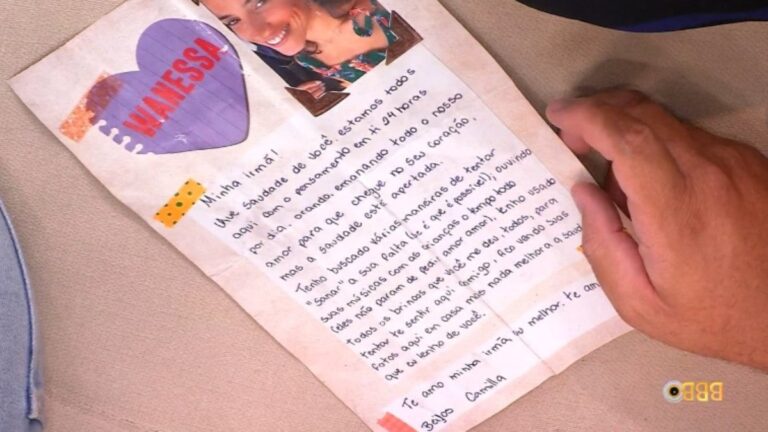 WANESSA
Minha irmã!
Que saudade de você, estamos todos
aqui com o pensamento em ti 24 horas
por dia, orando, emanando todo o nosso
amor para que chegue no seu coração,
mas a saudade está apertada.
Tenho buscado várias maneiras de tentar
"sanar" a sua falta (se é que é possível), ouvindo
suas músicas com as crianças o tempo todo
(eles não param de pedir amor amor), tenho usado
todos os brincos que você me deu, todos, para
tentar te sentir aqui comigo, fico vendo suas
fotos aqui em casa mas nada melhora a saud
que eu tenho de você.
Te amo minha irmã melhor. te am
Beijos Camilla
BBB